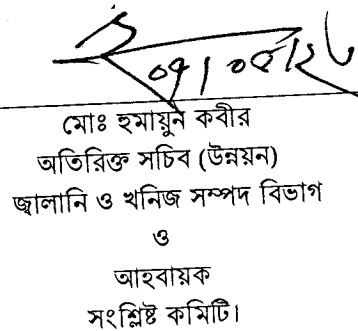 মোঃ হুমায়ুন কবীর
অতিরিক্ত সচিব (উন্নয়ন)
জ্বালানি ও খনিজ সম্পদ বিভাগ
ও
আহবায়ক
সংশ্লিষ্ট কমিটি।